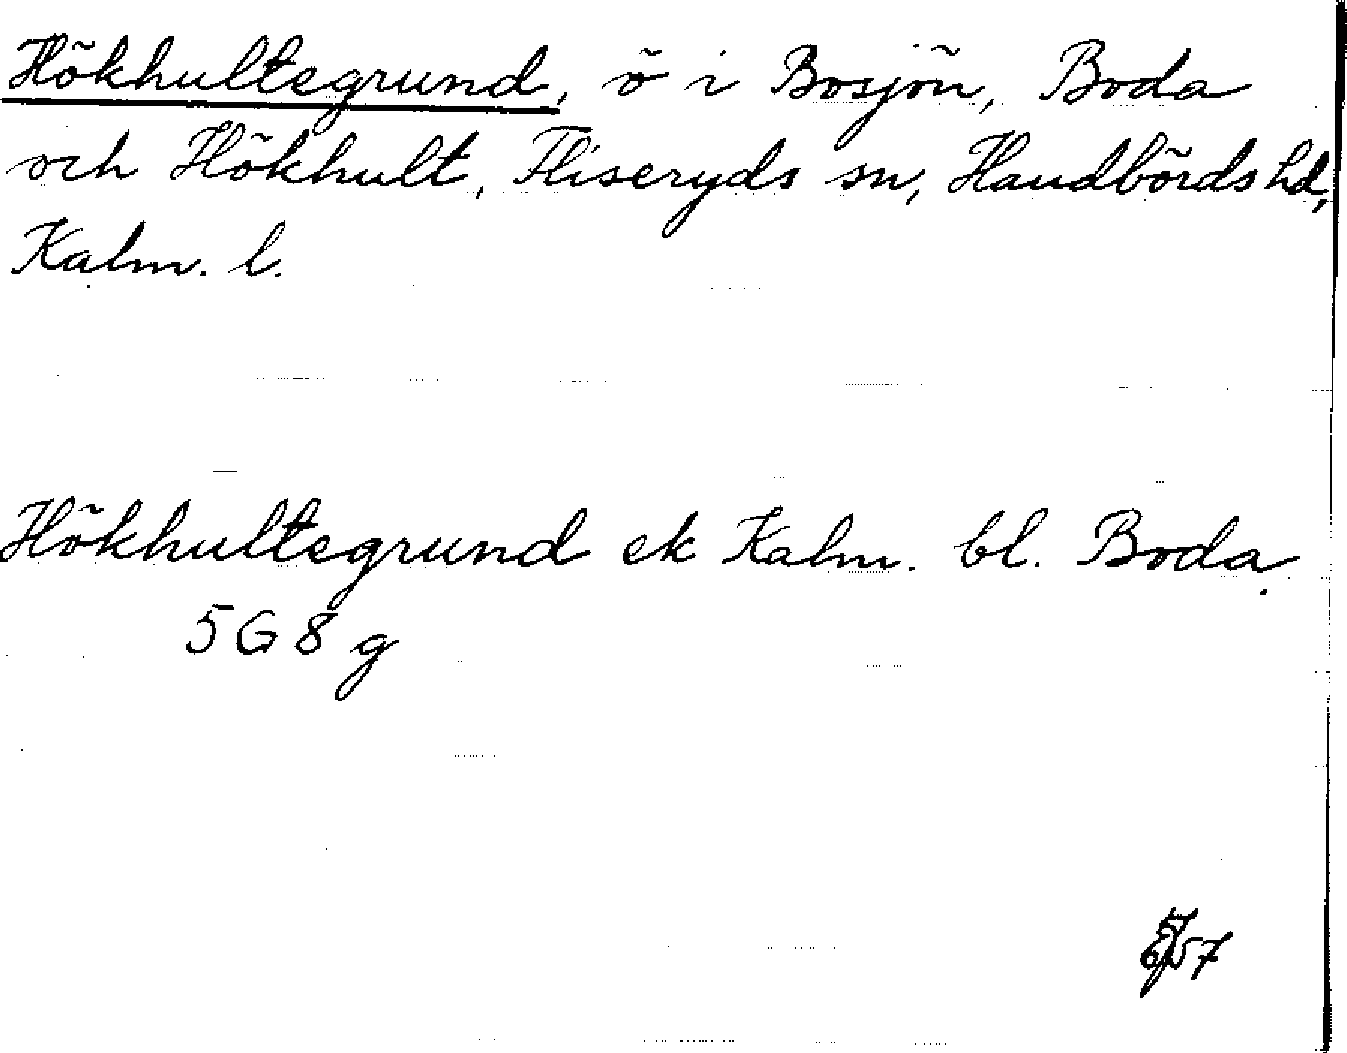 Hökhultegrund, ö i Bosjön, Boda
och Hökhult, Fliseryds sn, Handbörds hd,
Kalm. l.
Hökhultegrund ek Kalm. bl. Boda
5 G 8 g